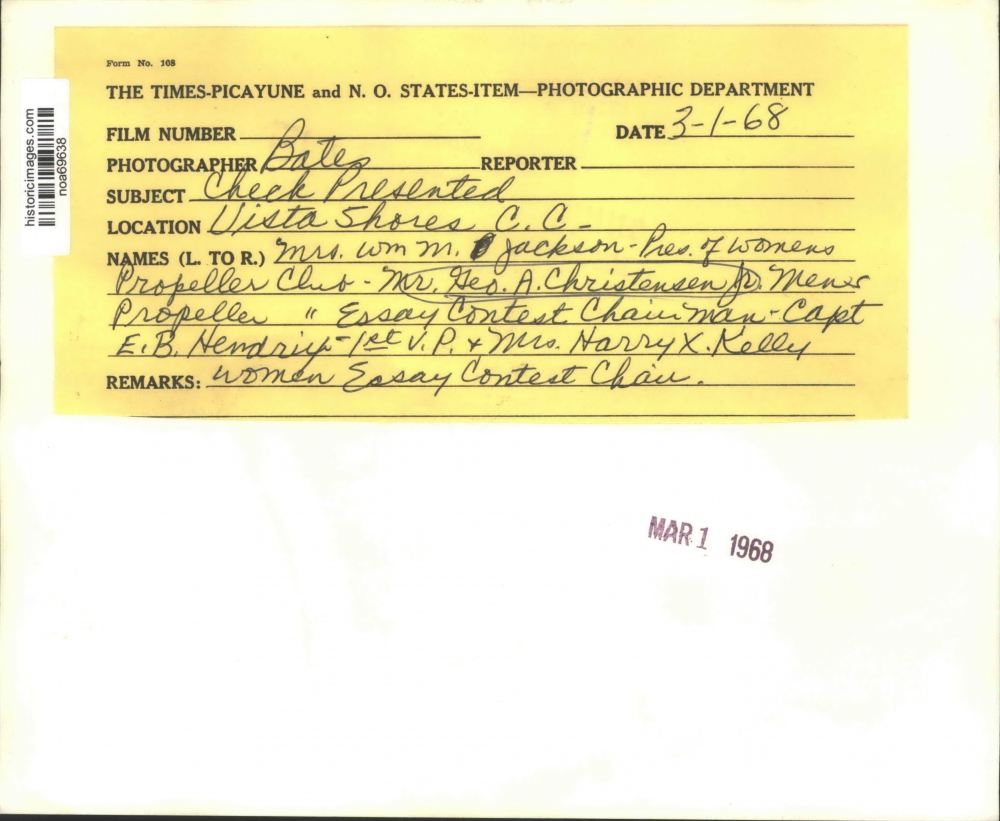 Form No. 108
THE TIMES-PICAYUNE and N. O. STATES-ITEM—PHOTOGRAPHIC DEPARTMENT
FILM NUMBER DATE 3-1-68
PHOTOGRAPHER Bates REPORTER
SUBJECT Check Presented
LOCATION Vista Shores C.C.
NAMES (L. TO R.) Mrs. Wm M. Jackson - Pres. of Womens
Propeller Club - Mr. Geo. A. Christensen Jr. Mens
Propeller " Essay Contest Chairman - Capt
E.B. 1st V.P. & Mrs. Harry X. Kelly
REMARKS: Women Essay Contest Chair.
MAR 1 1968
historicimages.com
noa69638